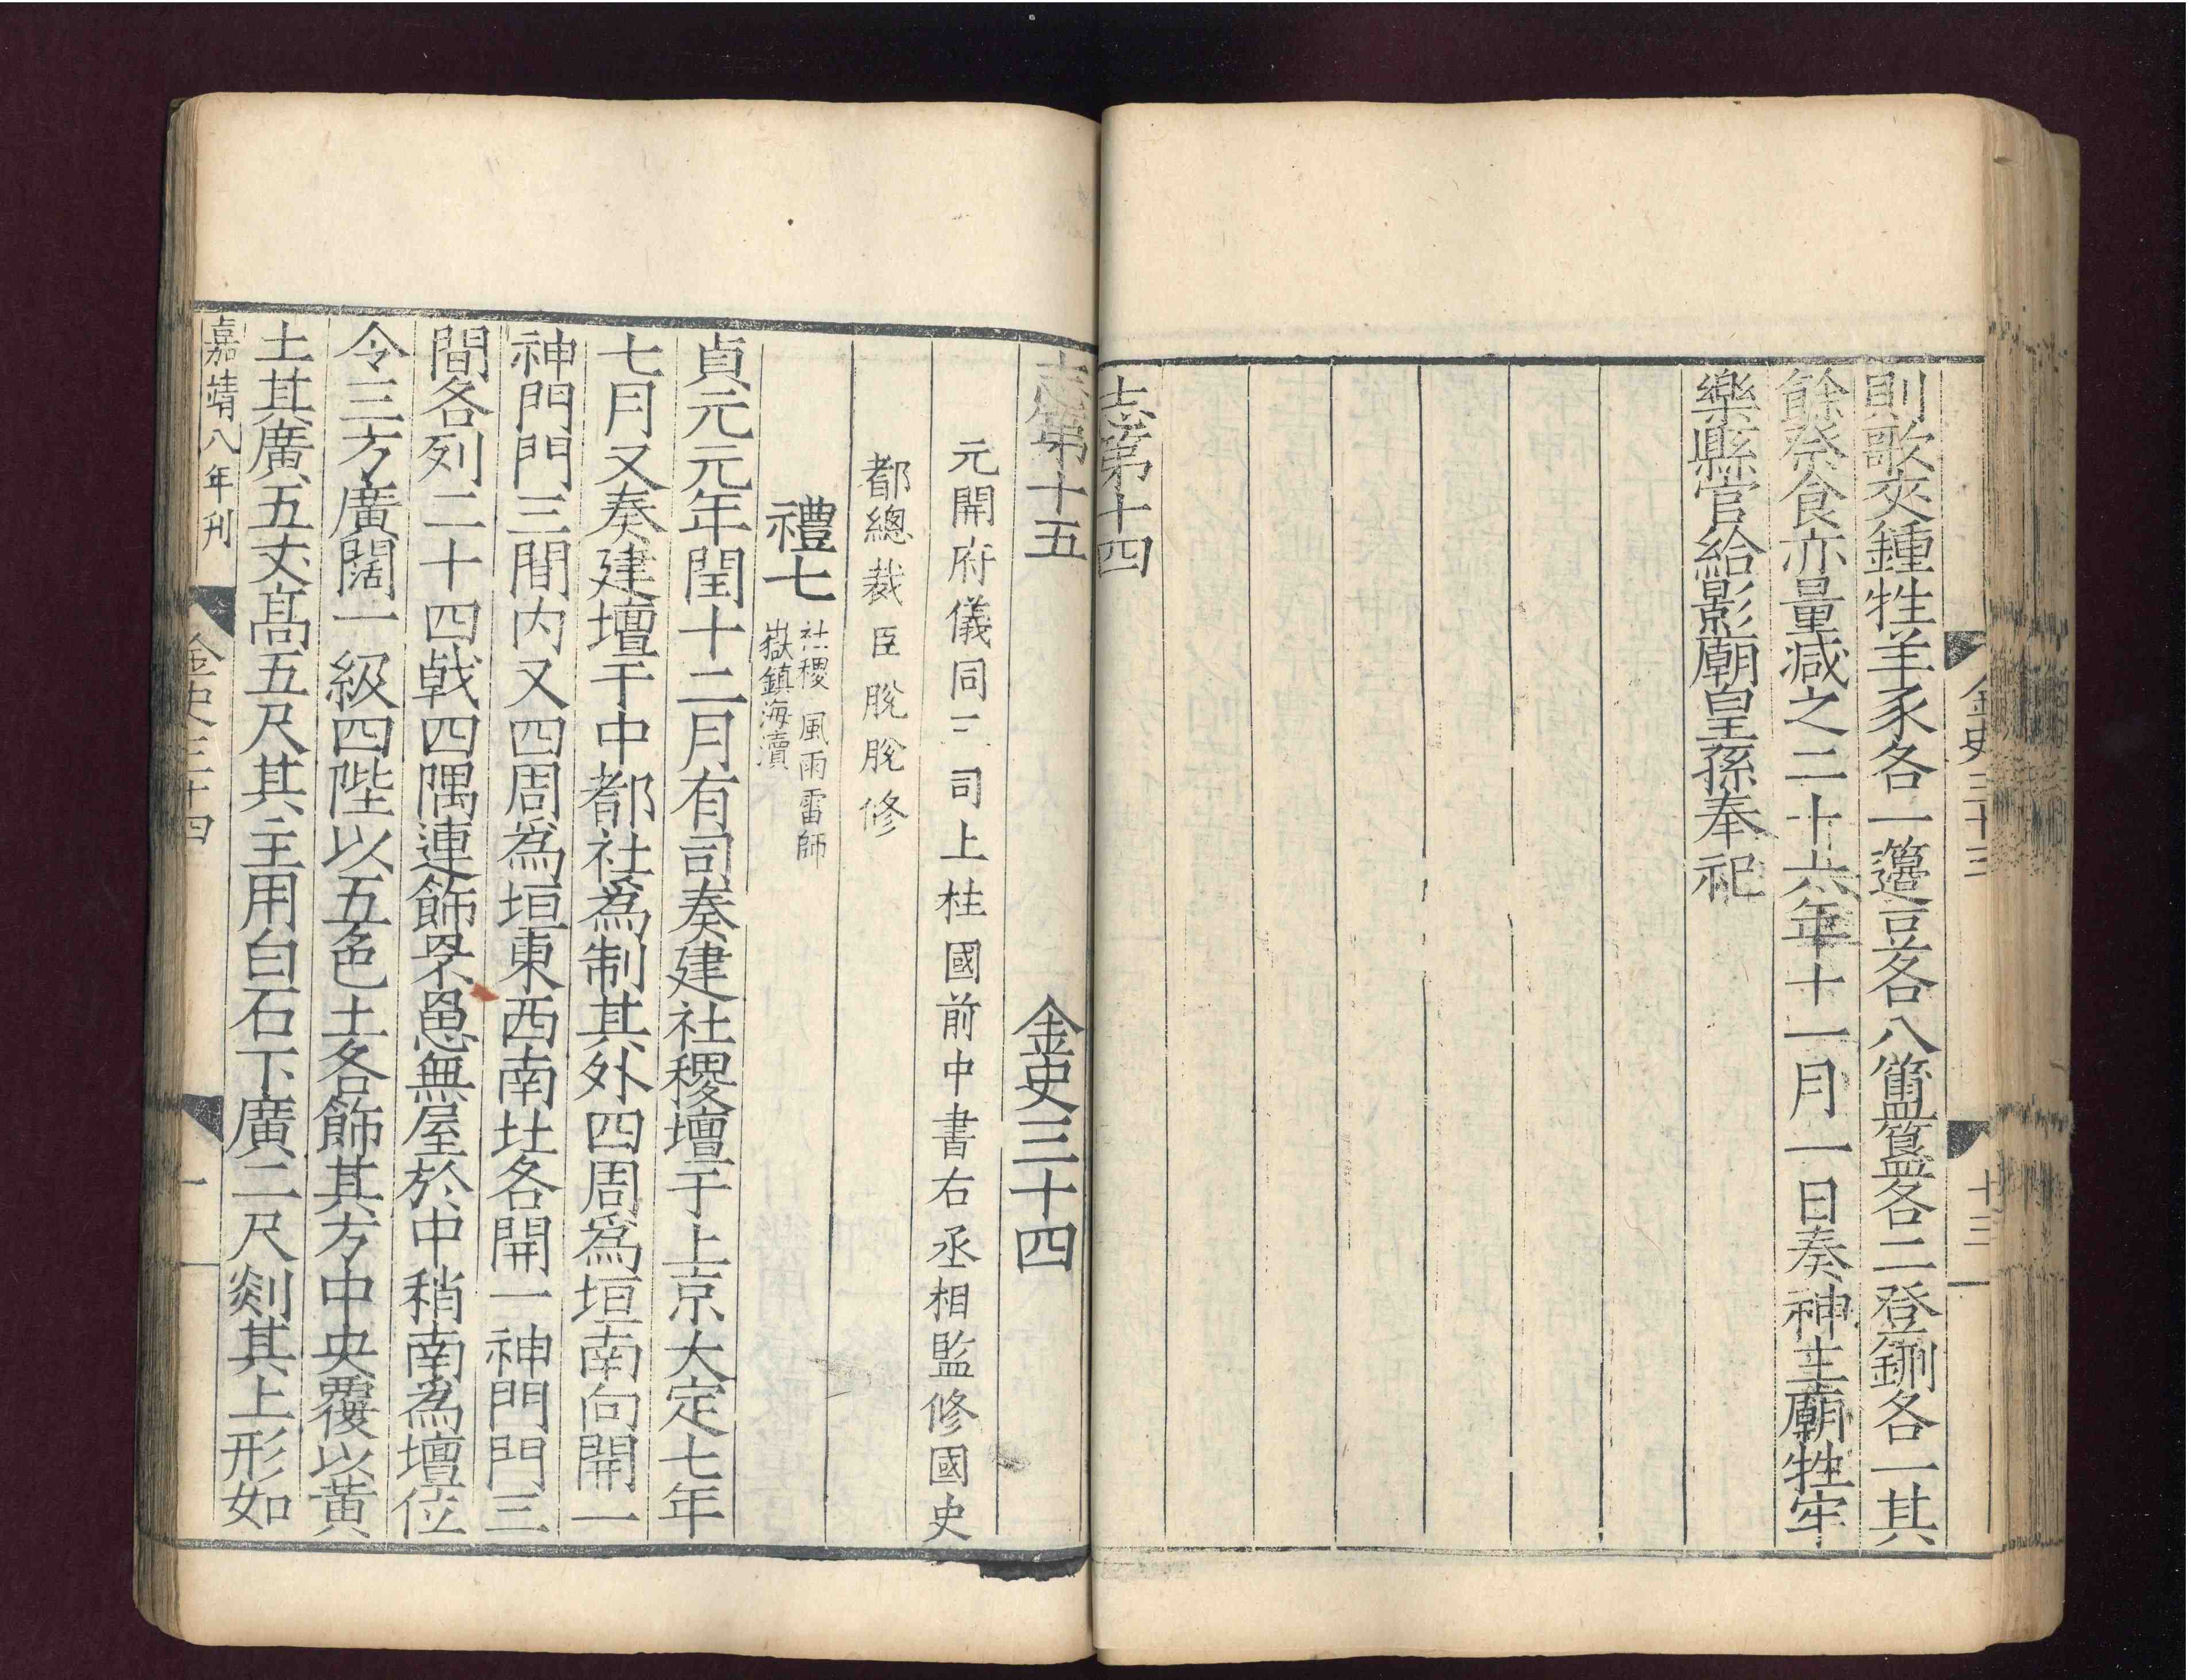 金史三十三
十三
則歌夾鍾牲羊豕各一籩豆各八簠簋各二登鉶各一其
餘祭食亦量减之二十六年十一月一日奏神主廟牲牢
樂縣官給影廟皇孫奉祀
志第十四
志第十五 金史三十四
元開府儀同三司上柱國前中書右丞相監修國史
都總裁臣脫脫修
禮七 社稷 風雨雷師
嶽鎮海瀆
貞元元年閏十二月有司奏建社稷壇于上京大定七年
七月又奏建壇于中都社爲制其外四周爲垣南向開一
神門門三間内又四周爲垣東西南北各開一神門門三
間各列二十四戟四隅連飾罘罳無屋於中稍南爲壇位
令三方廣闊一級四陛以五色土各飾其方中央覆以黄
土其廣五丈髙五尺其主用白石下廣二尺剡其上形如
嘉靖八年刊
金史三十四
一